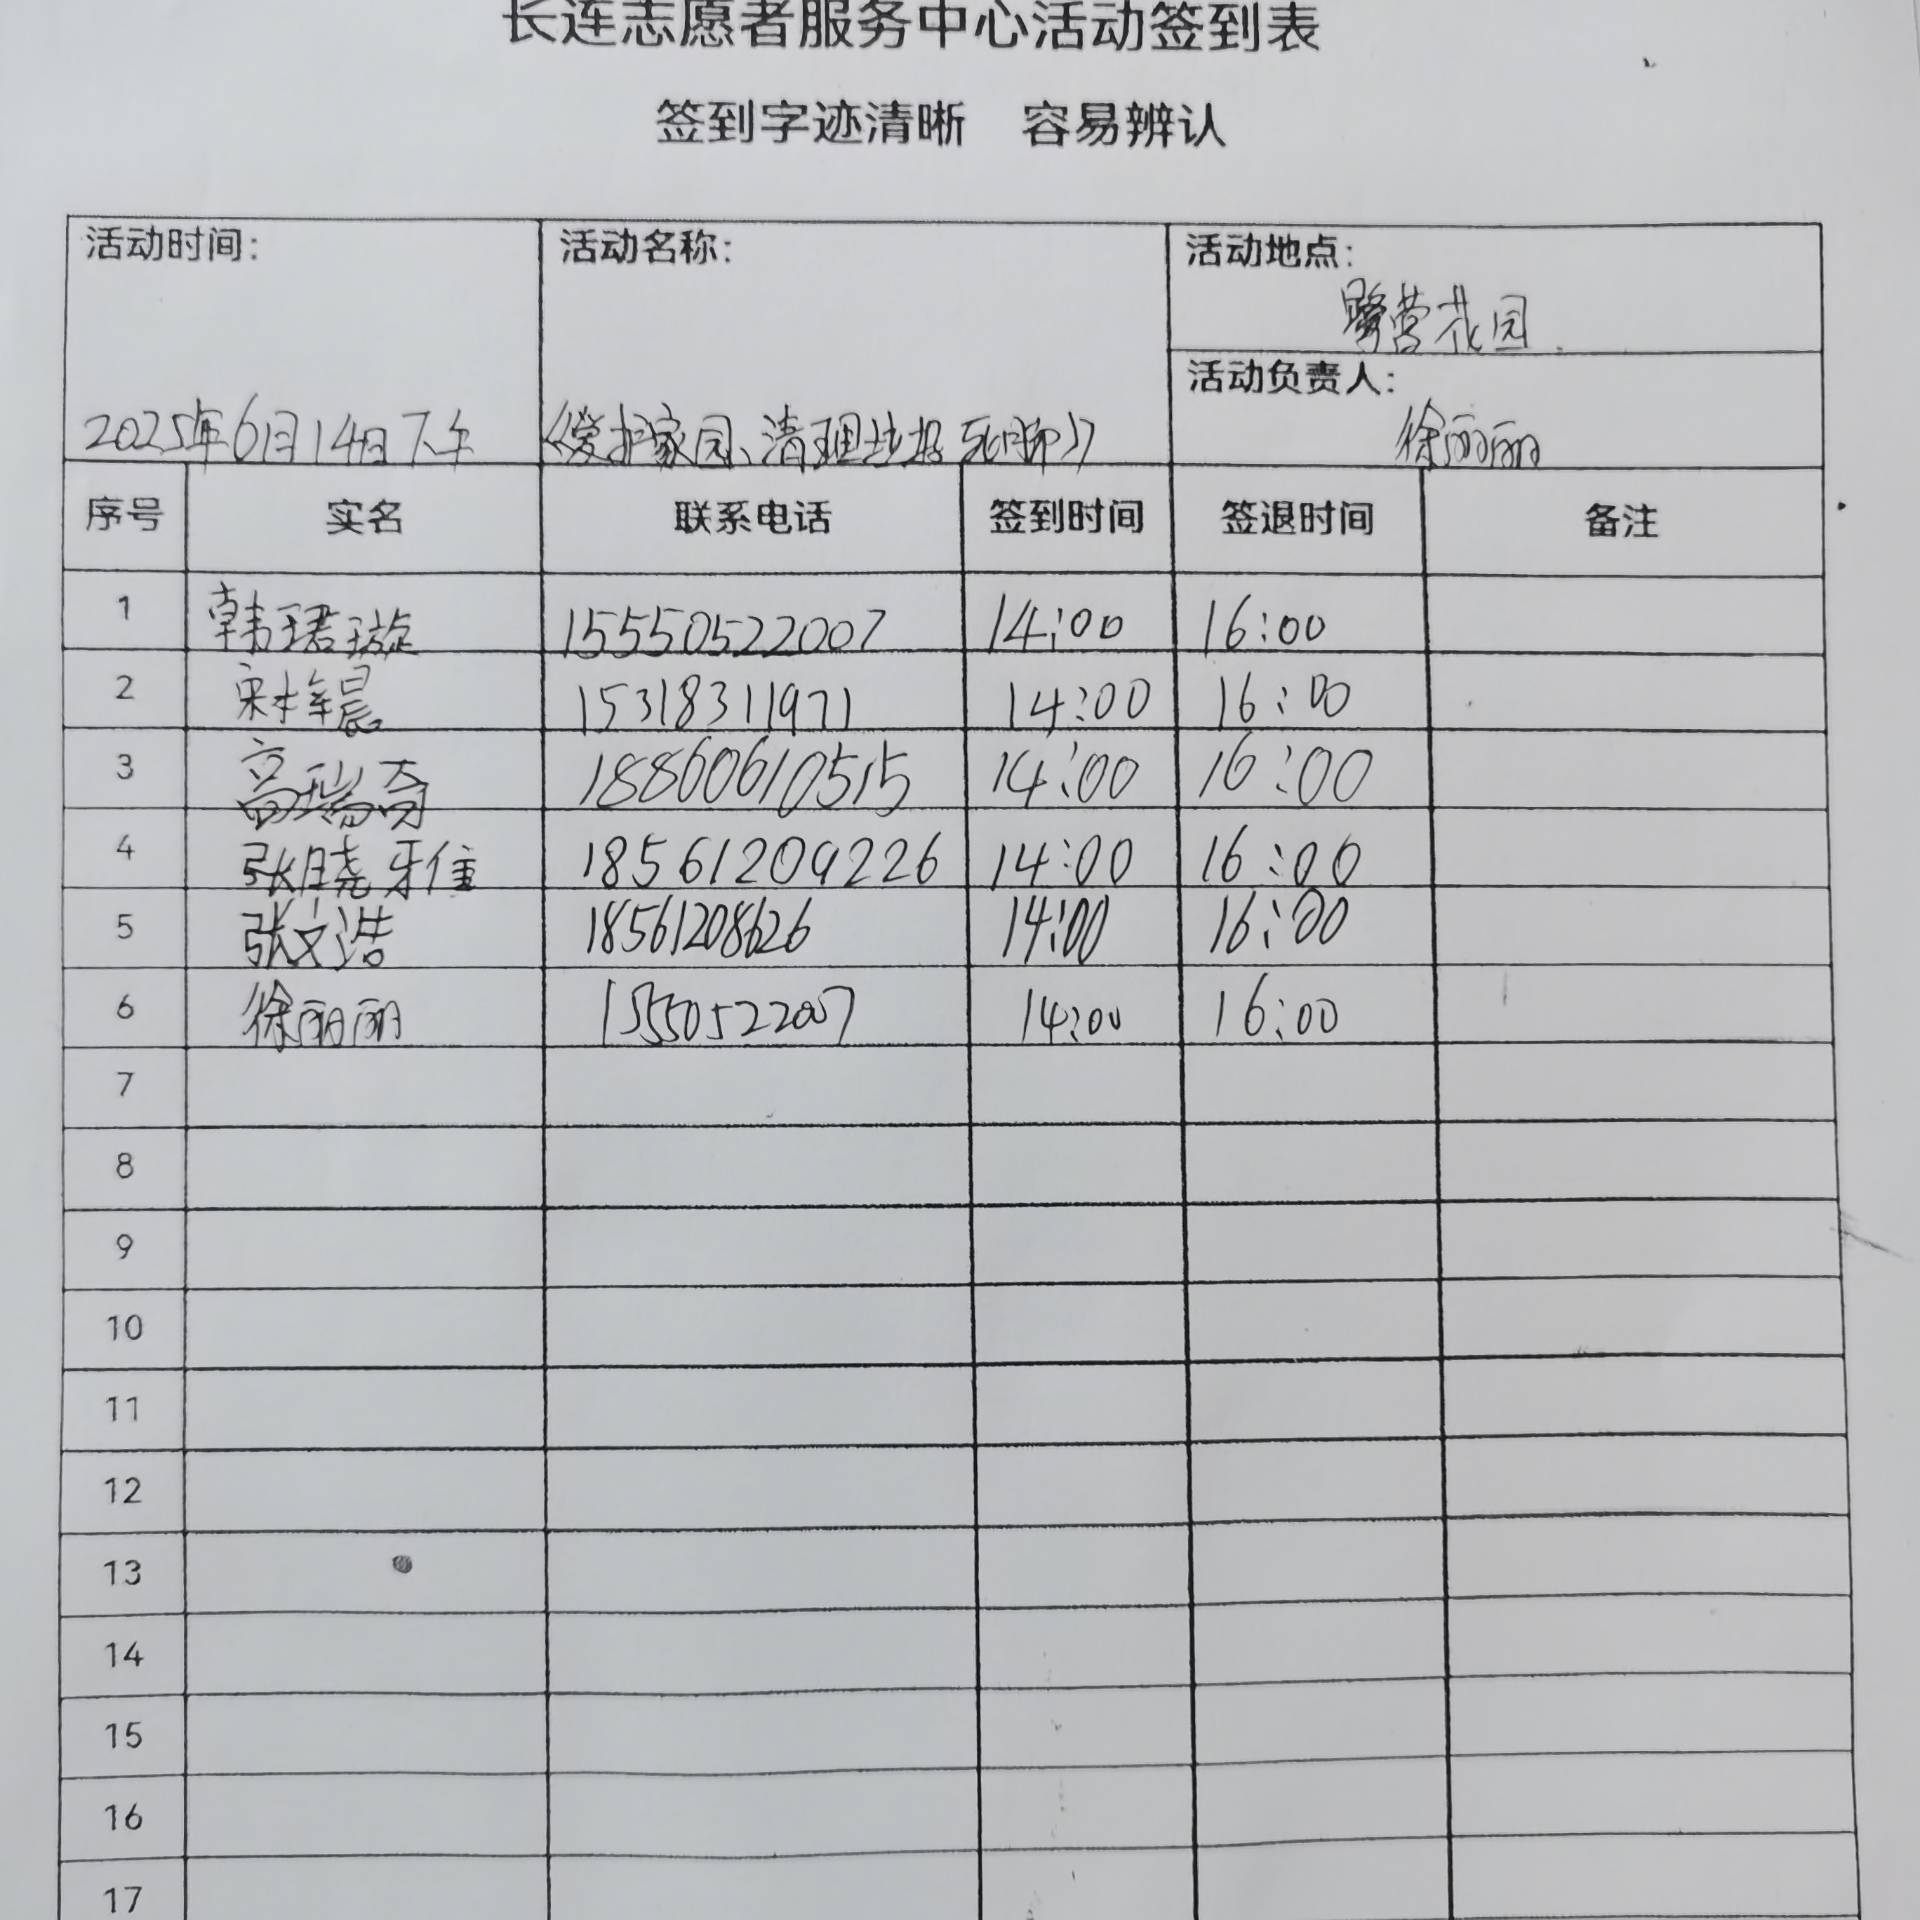 长连志愿者服务中心活动签到表
签到字迹清晰 容易辨认
活动时间: 活动名称: 活动地点:
营花园
活动负责人:
2025年6月14日下午 《爱护家园、清理垃圾死角》 徐丽丽
序号 实名 联系电话 签到时间 签退时间 备注
1 韩珺璇 15550522007 14:00 16:00
2 宋梓晨 15318311971 14:00 16:00
3 高瑞奇 18860610515 14:00 16:00
4 张晓雅 18561209226 14:00 16:00
5 张文浩 18561208626 14:00 16:00
6 徐丽丽 15550522007 14:00 16:00
7
8
9
10
11
12
13
14
15
16
17